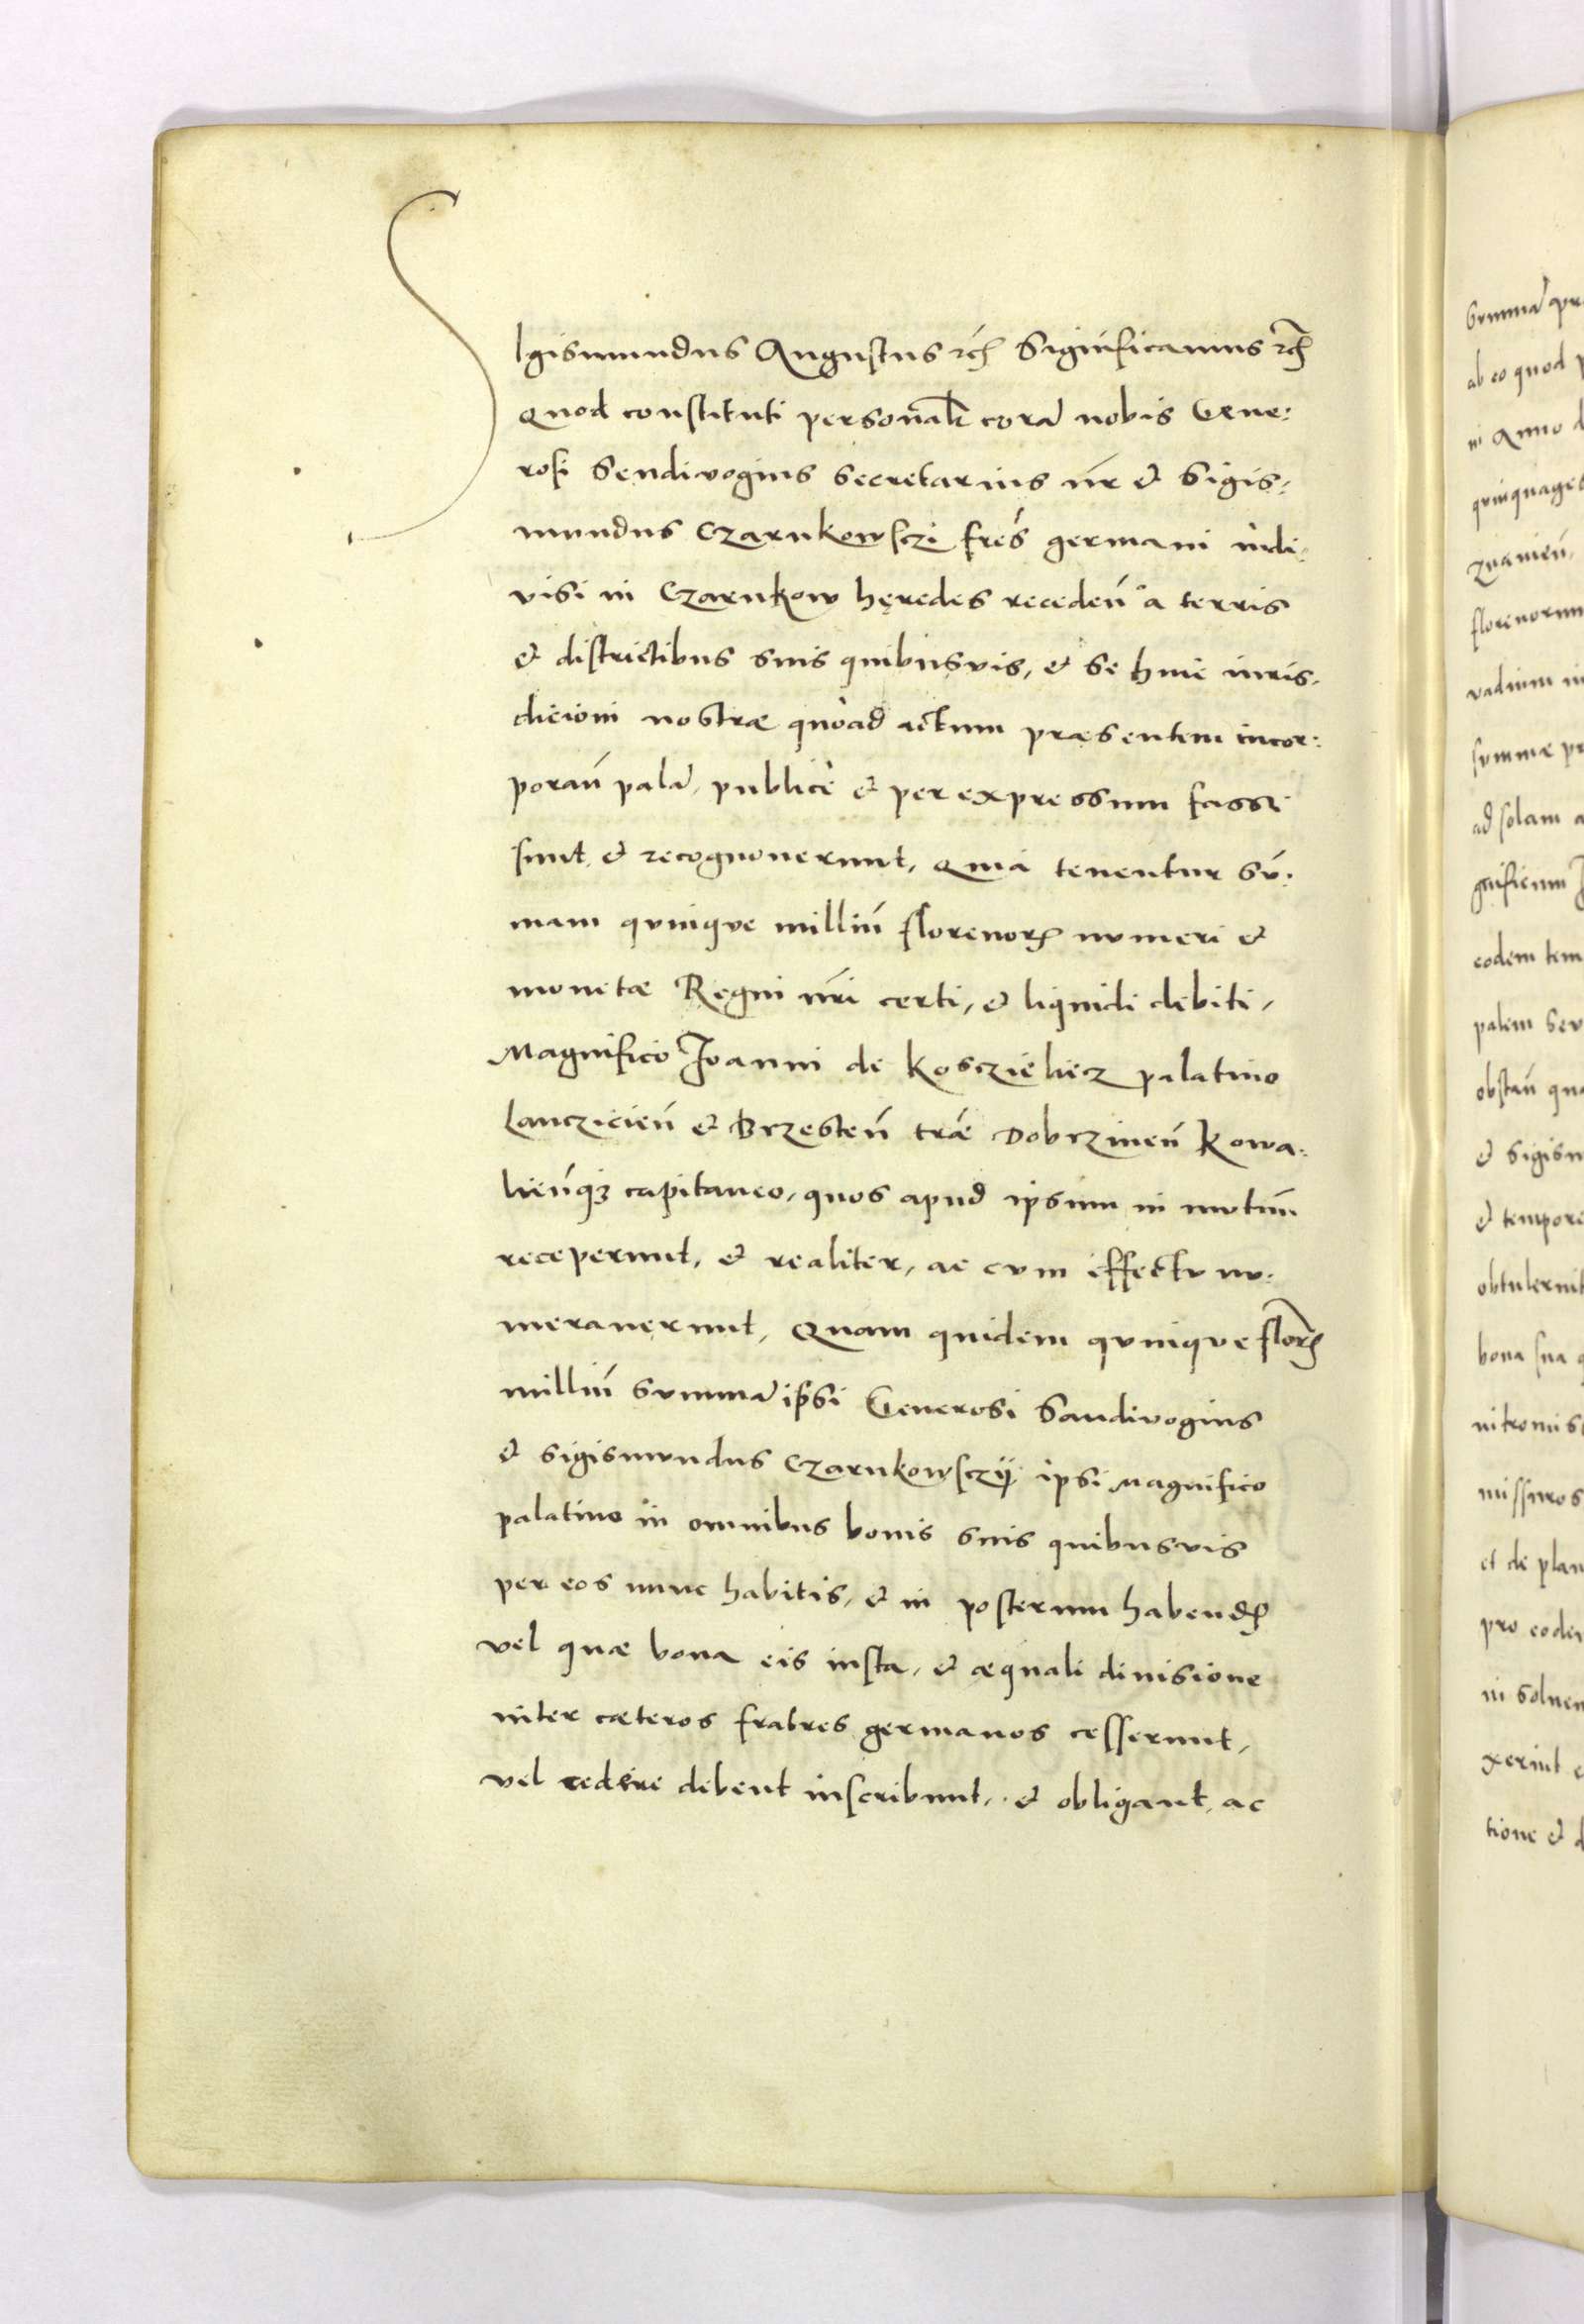 SIgismundus Augustus rc̃ Significamus rc̃
Quod constituti personalr̃ corã nobis Gene:
rosi Sendivogius Secretarius nr̃ & Sigis:
mundus Czarnkowsczi frẽs germani indi,
visi in Czarnkow hęredes recedeñ a terris
& districtibus suis quibusvis, & se huic iuris,
dicioni nostræ quoad actum præsentem incor:
porañ palã, publice & per expressum fassi
sunt, & recognoverunt, Quia tenentur Sũ:
mam quinque milliũ florenorꝫ numeri &
monetæ Regni nr̃i certi, & liquidi debiti,
Magnifico Joanni de Kosczieliecz palatino
Lancziciẽn & Brzesteñ trǣ Dobrzineñ Kowa:
lieñqꝫ capitaneo, quos apud ipsum in mutuũ
receperunt, & realiter, ac cum effectu nu:
meraverunt, Quam quidem quinque florꝫ
milliũ summã ipsi Generosi Sandivogius
& Sigismundus Czarnkowsczÿ ipsi Magnifico
palatino in omnibus bonis suis quibusvis
per eos nunc habitis, & in posterum habendꝭ
vel quæ bona eis iusta, & æquali divisione
inter cæteros fratres germanos cesserunt,
vel cedere debent inscribunt, & obligant, ac
Summã
ab eo quod
in Anno
florenorum
vadium
summæ
ad solam
gnificum
eodem
palem seu
obstañ
& Sigism
& tempore
bona sua
et de plan
pro
in solven
xerint
tione &